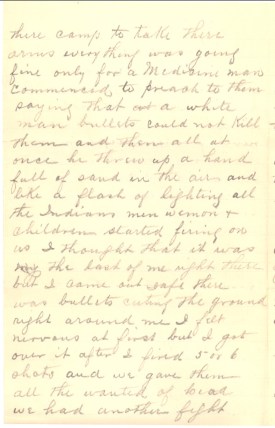 there camp to take there
arms everything was going
fine only for a Medisine man
commenced to preach to them
saying that out a white
man bullets could not Kill
them and then all at
once he threw up a hand
full of sand in the air and
like a flash of lighting all
the Indians men wemon &
children started firing on
us I thought that it was
the last of me right there
but I came out safe there
was bullets cuting the ground
right around me I felt
nervous at first but I got
over it after I fired 5 or 6
shots and we gave them
all the wanted of lead
we had another fight